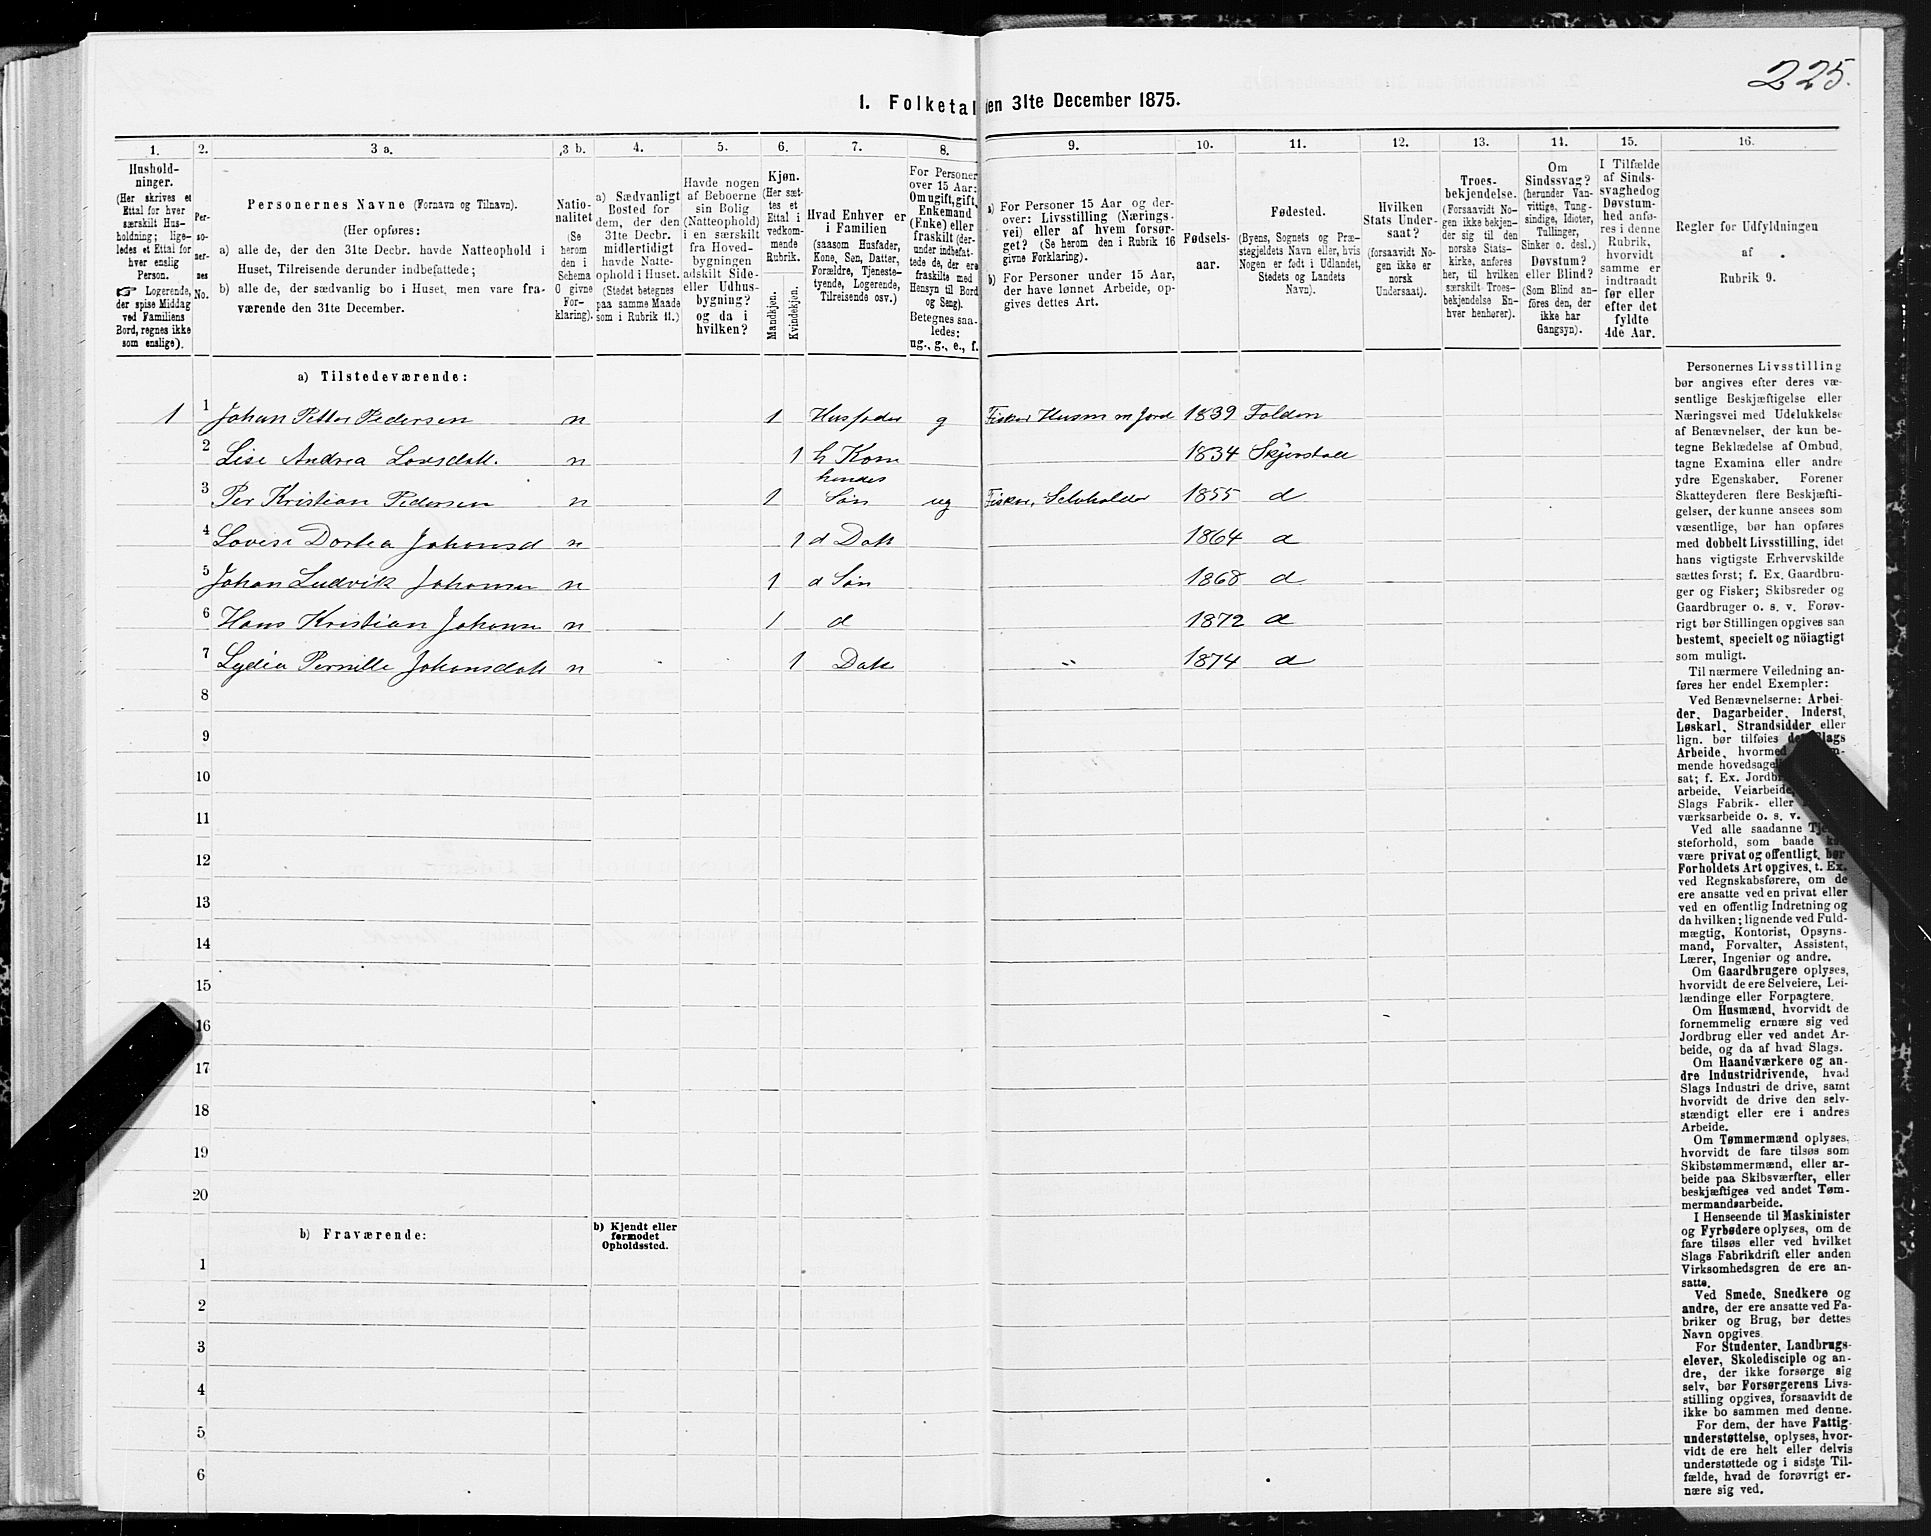 225.
1. Folketal den 31te December 1875.
1. 2. 3 a. 3 b. 4. 5. 6. 7. 8. 9. 10. 11. 12. 13. 14. 15. 16.
Hushold-
ninger.
(Her skrives et
Ettal for hver
særskilt Hus-
holdning; lige-
ledes et Ettal for
hver enslig
Person.
☞ Logerende,
der spise Middag
ved Familiens
Bord, regnes ikke
som enslige).
Per-
so-
ner-
nes
No.
Personernes Navne (Fornavn og Tilnavn).
(Her opføres:
a) alle de, der den 31te Decbr. havde Natteophold i
Huset, Tilreisende derunder indbefattede;
b) alle de, der sædvanlig bo i Huset, men vare fra-
værende den 31te December.
Natio-
nalitet
(Se
herom
den i
Schema
O givne
For-
klaring).
a) Sædvanligt
Bosted for
dem, der den
31te Decbr.
midlertidigt
havde Natte-
ophold i Huset.
(Stedet betegnes
paa samme Maade
som i Rubrik 11.)
Havde nogen
af Beboerne
sin Bolig
(Natteophold)
i en særskilt
fra Hoved-
bygningen
adskilt Side-
eller Udhus-
bygning?
og da i
hvilken?
Kjøn.
(Her sæt-
tes et
Ettal i
vedkom-
mende
Rubrik.
Mandkjøn.
Kvindekjøn.
Hvad Enhver er
i Familien
(saasom Husfader,
Kone, Søn, Datter,
Forældre, Tjeneste-
tyende, Logerende,
Tilreisende osv.)
For Personer
over 15 Aar:
Om ugift, gift,
Enkemand
(Enke) eller
fraskilt (der-
under indbefat-
tede de, der ere
fraskilte med
Hensyn til Bord
og Seng).
Betegnes saa-
ledes:
ug., g., e., f.
a) For Personer 15 Aar og der-
over: Livsstilling (Nærings-
vei) eller af hvem forsør-
get? (Se herom den i Rubrik 16
givne Forklaring).
b) For Personer under 15 Aar,
der have lønnet Arbeide, op-
gives dettes Art.
Fødsels-
aar.
Fødested.
(Byens, Sognets og Præ-
stegjeldets Navn eller, hvis
Nogen er født i Udlandet,
Stedets og Landets
Navn).
Hvilken
Stats Under-
saat?
(forsaavidt No-
gen ikke er
norsk
Undersaat).
Troes-
bekjendelse.
(Forsaavidt No-
gen ikke bekjen-
der sig til den
norske Stats-
kirke, anføres
her, til hvilken
særskilt Troes-
bekjendelse En-
hver henhører).
Om
Sindssvag?
(herunder Van-
vittige, Tung-
sindige, Idioter,
Tullinger,
Sinker o. desl.)
Døvstum?
eller Blind?
(Som Blind an-
føres den, der
ikke har
Gangsyn).
I Tilfælde
af Sinds-
svaghed og
Døvstum-
hed anfø-
res i denne
Rubrik,
hvorvidt
samme er
indtraadt
før eller
efter det
fyldte
4de Aar.
Regler for Udfyldningen
af
Rubrik 9.
a) Tilstedeværende:
1 1 Johan Petter Pedersen n 1 Husfader g Fisker Husm m Jord 1839 Folden
2 Lise Andrea Larsdatt. n 1 h Kone 1834 Skjerstad
3 Per Kristian Pedersen n 1 hendes Søn ug Fisker, Selvholder 1855 d
4 Lovise Dortea Johansd n 1 d Datt 1864 d
5 Johan Ludvik Johansen n 1 d Søn 1868 d
6 Hans Kristian Johanse n 1 d 1872 d
7 Lydia Pernille Johansdatt n 1 Datt " 1874 d
8
9
10
11
12
13
14
15
16
17
18
19
20
b) Fraværende:
b) Kjendt eller
formodet
Opholdssted.
1
2
3
4
5
6
Personernes Livsstilling
bør angives efter deres væ-
sentlige Beskjæftigelse eller
Næringsvei med Udelukkelse
af Benævnelser, der kun be-
tegne Beklædelse af Ombud,
tagne Examina eller andre
ydre Egenskaber. Forener
Skatteyderen flere Beskjæfti-
gelser, der kunne ansees som
væsentlige, bør han opføres
med dobbelt Livsstilling, idet
hans vigtigste Erhvervskilde
sættes først; f. Ex. Gaardbru-
ger og Fisker; Skibsreder og
Gaardbruger o. s. v. Forøv-
rigt bør Stillingen opgives saa
bestemt, specielt og nöiagtigt
som muligt.
Til nærmere Veiledning an-
føres her endel Exempler:
Ved Benævnelserne: Arbei-
der, Dagarbeider, Inderst,
Løskarl, Strandsidder eller
lign. bør tilføies det Slags
Arbeide, hvormed
mende hovedsagel
sat; f. Ex. Jordb
arbeide, Veiarbeide,
Slags Fabrik- eller
værksarbeide o. s. v.
Ved alle saadanne Tje
steforhold, som baade k
være privat og offentligt, bør
Forholdets Art opgives, t. Ex.
ved Regnskabsførere, om de
ere ansatte ved en privat eller
ved en offentlig Indretning og
da hvilken; lignende ved Fuld-
mægtig, Kontorist, Opsyns-
mand, Forvalter, Assistent,
Lærer, Ingeniør og andre.
Om Gaardbrugere oplyses,
hvorvidt de ere Selveiere, Lei-
lændinge eller Forpagtere.
Om Husmænd, hvorvidt de
fornemmelig ernære sig ved
Jordbrug eller ved andet Ar-
beide, og da af hvad Slags.
Om Haandværkere og an-
dre Industridrivende, hvad
Slags Industri de drive, samt
hvorvidt de drive den selv-
stændigt eller ere i andres
Arbeide.
Om Tømmermænd oplyses,
hvorvidt de fare tilsøs som
Skibstømmermænd, eller ar-
beide paa Skibsværfter, eller
beskjæftiges ved andet Tøm-
mermandsarbeide.
I Henseende til Maskinister
og Fyrbødere oplyses, om de
fare tilsøs eller ved hvilket
Slags Fabrikdrift eller anden
Virksomhedsgren de ere an-
satte.
Ved Smede, Snedkere og
andre, der ere ansatte ved Fa-
briker og Brug, bør dettes
Navn opgives.
For Studenter, Landbrugs-
elever, Skoledisciple og an-
dre, der ikke forsørge sig
selv, bør Forsørgerens Livs-
stilling opgives, forsaavidt de
ikke bo sammen med denne.
For dem, der have Fattig-
understøttelse, oplyses, hvor-
vidt de ere helt eller delvis
understøttede og i sidste Til-
fælde, hvad de forøvrigt er-
nære sig ved.